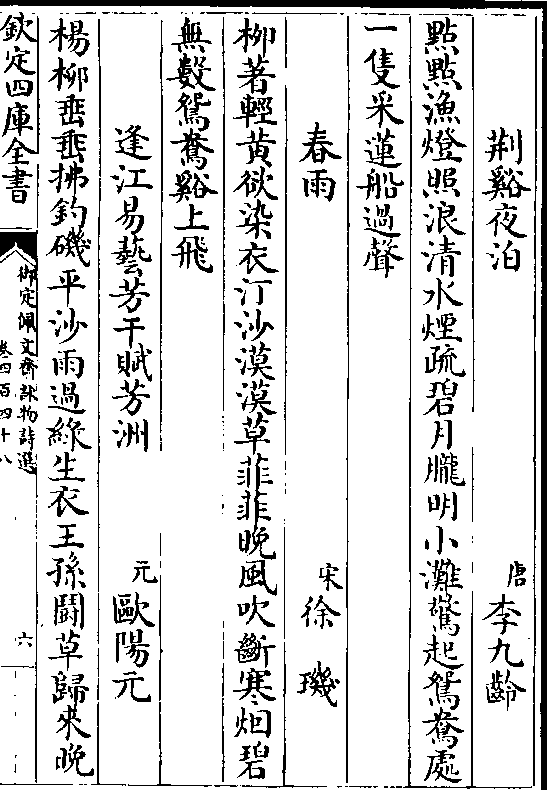 荆谿夜泊　唐李九齡
點點漁燈照浪清水煙疏碧月朧明小灘驚起鴛鴦處
一隻采蓮船過聲
春雨　宋徐璣
柳著輕黄欲染衣汀沙漠漠草菲菲晚風吹斷寒烟碧
無數鴛鴦谿上飛
逢江易藝芳干賦芳洲　元歐陽元
楊柳垂垂拂釣磯平沙雨過綠生衣王孫鬪草歸來晚
欽定四庫全書
御定佩文齋詠物詩選
卷四百四十八
六